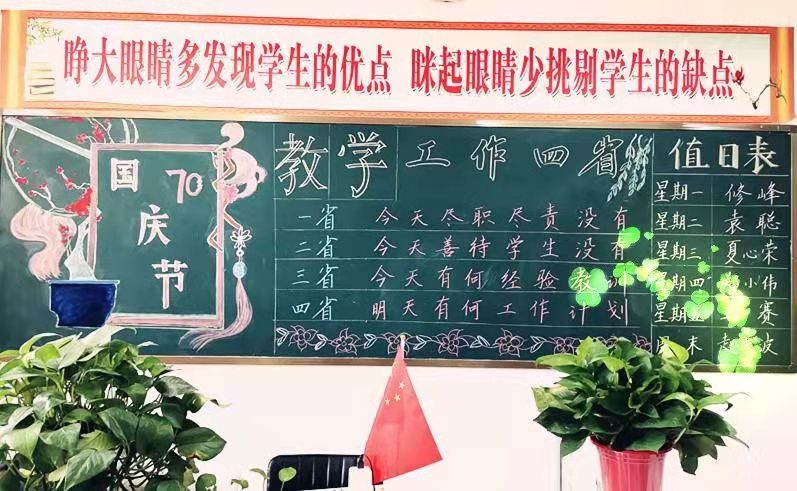 睁大眼睛多发现学生的优点 眯起眼睛少挑剔学生的缺点
国庆节
70
教学工作四省
一省 今天尽职尽责没有
二省 今天善待学生没有
三省 今天有何经验教训
四省 明天有何工作计划
值日表
星期一 修峰
星期二 袁聪
星期三 夏心荣
星期四 小伟
星期五 赛
周末 波